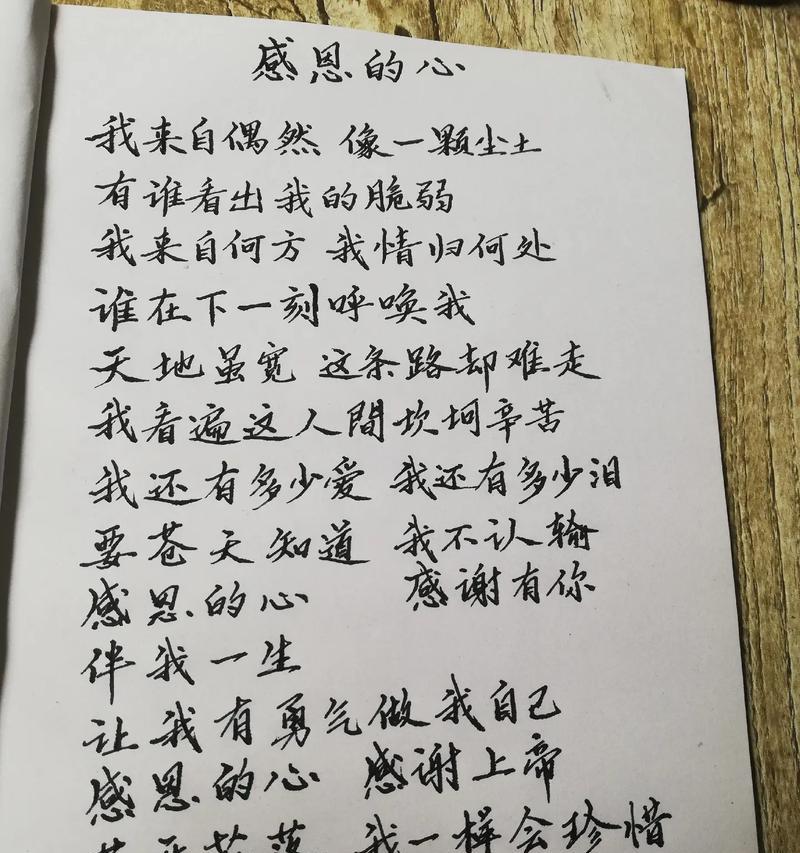 感恩的心
我来自偶然 像一颗尘土
有谁看出我的脆弱
我来自何方 我情归何处
谁在下一刻呼唤我
天地虽宽 这条路却难走
我看遍这人間坎坷辛苦
我还有多少爱 我还有多少泪
要苍天知道 我不认输
感恩的心 感谢有你
伴我一生
让我有勇气做我自己
感恩的心 感谢上帝
花开花落 我一样会珍惜